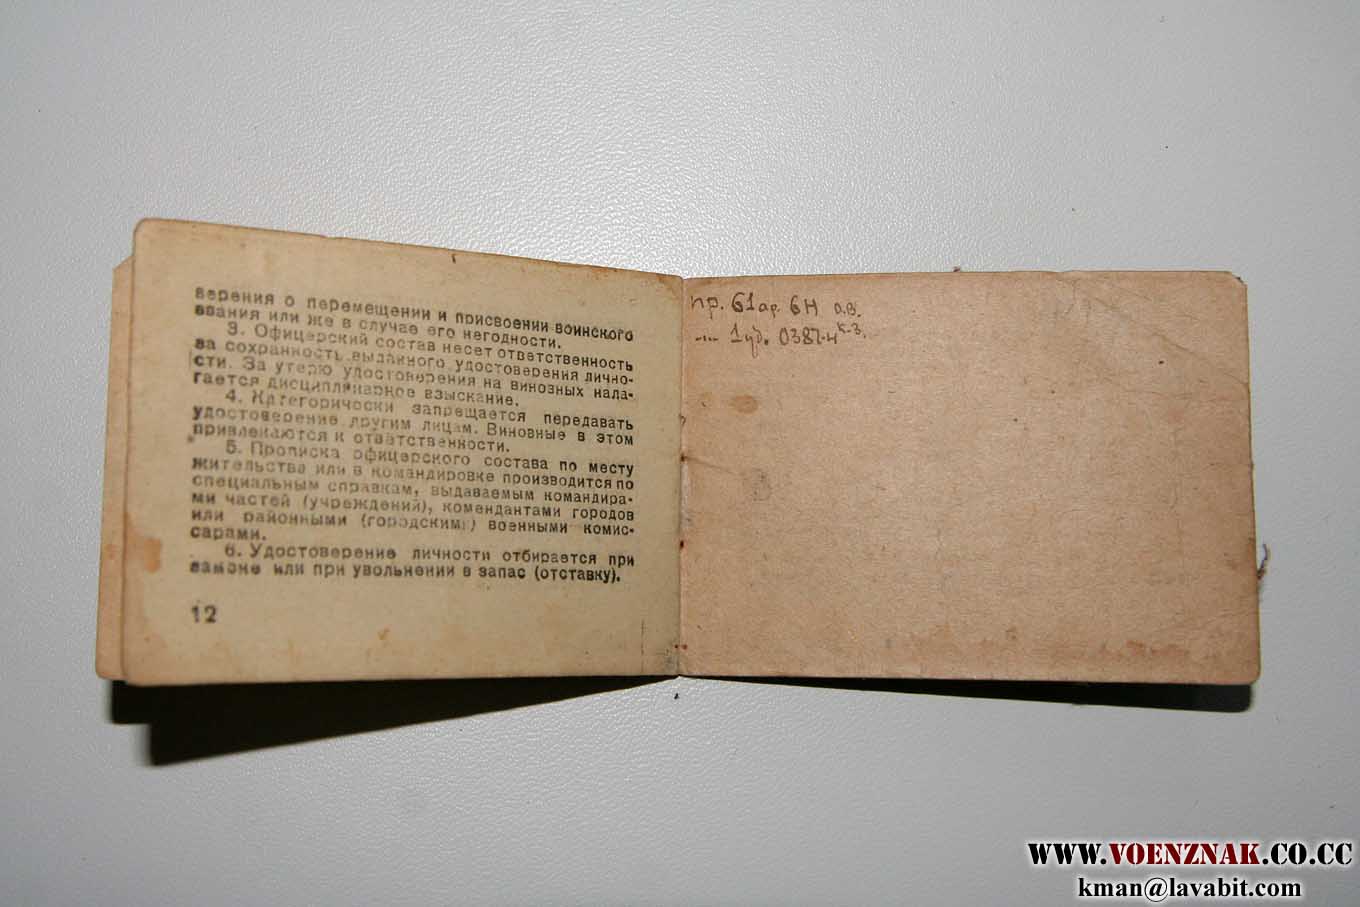 верения о перемещении и присвоении воинского
звания или же в случае его негодности.
3. Офицерский состав несет ответственность
за сохранность выданного удостоверения лично-
сти. За утерю удостоверения на виновных нала-
гается дисциплинарное взыскание.
4. Категорически запрещается передавать
удостоверение другим лицам. Виновные в этом
привлекаются к ответственности.
5. Прописка офицерского состава по месту
жительства или в командировке производится по
специальным справкам, выдаваемым командира-
ми частей (учреждений), комендантами городов
или районными (городскими) военными комис-
сарами.
6. Удостоверение личности отбирается при
замене или при увольнении в запас (отставку).
12
пр. 61 ар. 6Н о.В.
1 уд.
WWW.VOENZNAK.CO.CC
kman@lavabit.com